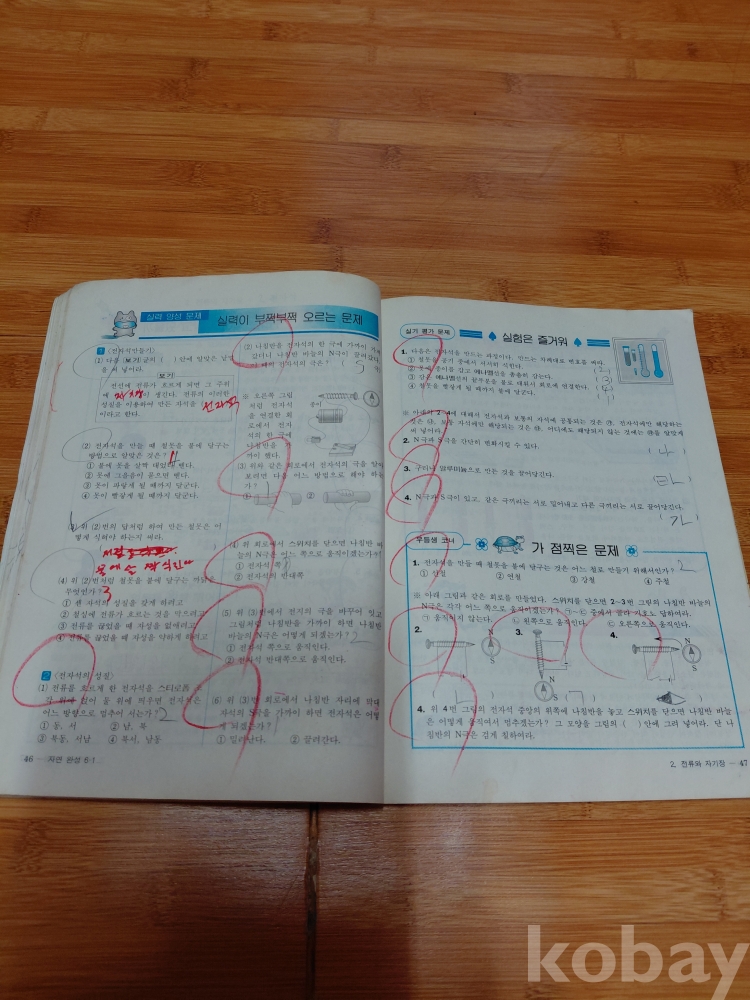 실력 양성 문제
실력이 부쩍부쩍 오르는 문제
1 〈전자석만들기〉
(1) 다음 보기 글의 ( )안에 알맞은 낱말
을 써 넣어라.
보기
전선에 전류가 흐르게 되면 그 주위
에 자장이 생긴다. 전류의 이러한
성질을 이용하여 만든 자석을 전자석
이라고 한다.
(2) 전자석을 만들 때 쇠못을 불에 달구는
방법으로 알맞은 것은?
① 불에 못을 살짝 대었다 뺀다.
② 못에 그을음이 끝으면 뺀다.
③ 못이 파랗게 될 때까지 달군다.
④ 못이 빨갛게 될 때까지 달군다.
(3) 위 (2)번의 답처럼 하여 만든 쇠못은 어
떻게 식혀야 하는지 써라.
(4) 위 (2)번처럼 쇠못을 불에 달구는 까닭은
무엇인가? 3
① 센 자석의 성질을 갖게 하려고
② 철심에 전류가 흐르는 것을 막으려고
③ 전류를 끊었을 때 자성을 없애려고
④ 전류를 끊었을 때 자성을 약하게 하려고
2 〈전자석의 성질〉
(1) 전류를 흐르게 한 전자석을 스티로폼 조
각 위에 얹어 물 위에 띄우면 전자석은
어느 방향으로 멈추어 서는가? 2
① 동, 서 ② 남, 북
③ 북동, 서남 ④ 북서, 남동
(2) 나침반을 전자석의 한 극에 가까이 가져
갔더니 나침반 바늘의 N극이 끌려
※ 오른쪽 그림
처럼 전자석
을 연결한 회
로에서 전자
석의 한 극에
나침반을 가
까이 했다.
종이
(3) 위와 같은 회로에서 전자석의 극을 알아
보려면 다음 어느 방법으로 해야 하는
가?
① ②
(4) 위 회로에서 스위치를 닫으면 나침반 바
늘의 N극은 어느 쪽으로 움직이겠는가?
① 전자석 쪽
② 전자석의 반대쪽
(5) 위 (3)번에서 전지의 극을 바꾸어 잇고
그림처럼 나침반을 가까이 하면 나침반
바늘의 N극은 어떻게 되겠는가? 2
① 전자석 쪽으로 움직인다.
② 전자석 반대쪽으로 움직인다.
(6) 위 (3)번 회로에서 나침반 자리에 막대
자석의 S극을 가까이 하면 전자석은 어떻
게 되겠는가?
① 밀려난다. ② 끌려간다.
46 자연 완성 6·1
실기 평가 문제
실험은 즐거워
1. 다음은 전자석을 만드는 과정이다. 만드는 차례대로 번호를 써라.
① 쇠못을 공기 중에서 서서히 식힌다.
② 못에 종이를 감고 에나멜선을 촘촘히 감는다.
③ 감은 에나멜선의 끝부분을 불로 태워서 회로에 연결한다.
④ 쇠못을 빨갛게 될 때까지 불에 달군다.
2. N극과 S극을 간단히 변화시킬 수 있다. (나)
3. 구리나 알루미늄으로 만든 것을 끌어당긴다.
4. N극과 S극이 있고, 같은 극끼리는 서로 밀어내고 다른 극끼리는 서로 끌어당긴다.
우등생 코너
가 점찍은 문제
1. 전자석을 만들 때 쇠못을 불에 달구는 것은 어느 철로 만들기 위해서인가? 2
① 선철 ② 연철 ③ 강철 ④ 주철
※ 아래 그림과 같은 회로를 만들었다. 스위치를 닫으면 2~3번 그림의 나침반 바늘의
N극은 각각 어느 쪽으로 움직이겠는가? ㉠~㉢ 중에서 골라 기호로 답하여라.
㉠ 움직이지 않는다. ㉡ 왼쪽으로 움직인다. ㉢ 오른쪽으로 움직인다.
2. 3. 4.
N
S
N
S
N
S
4. 위 4번 그림의 전자석 중앙의 위쪽에 나침반을 놓고 스위치를 닫으면 나침반 바늘
은 어떻게 움직여서 멈추겠는가? 그 모양을 그림의 ( )안에 그려 넣어라. 단 나
침반의 N극은 검게 칠하여라.
2. 전류와 자기장 47
kobay